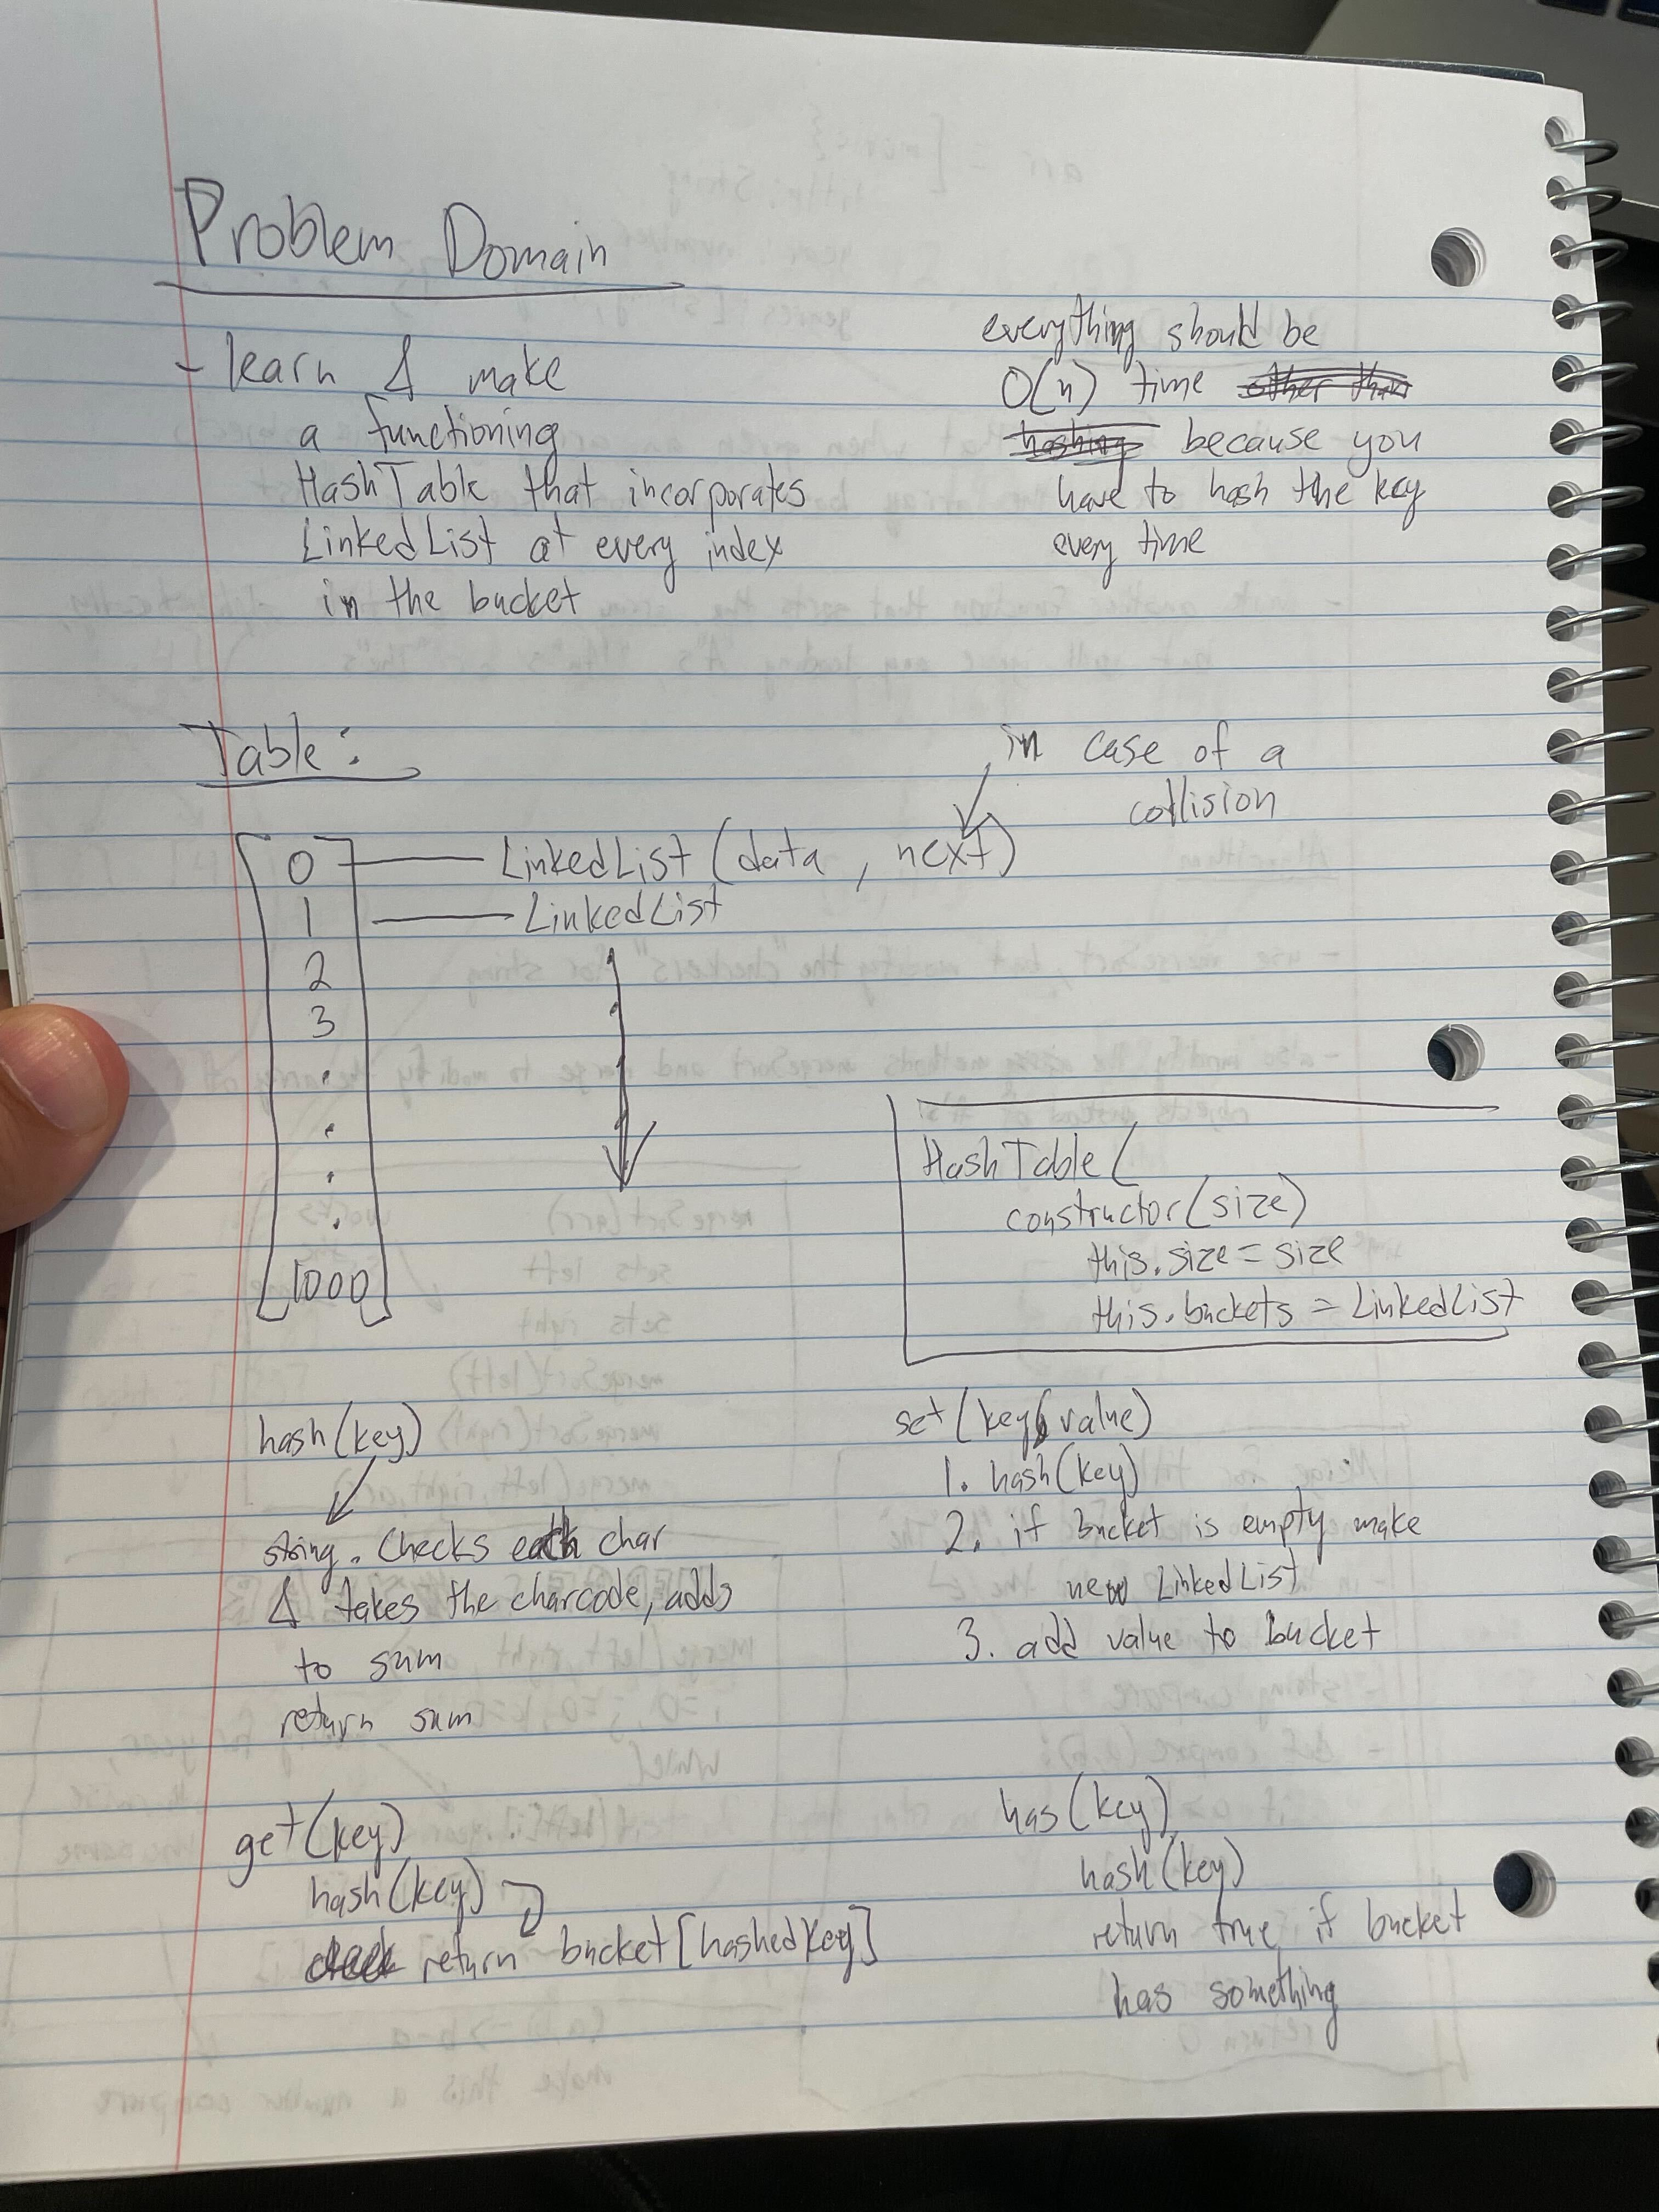 Problem Domain
- learn & make
a functioning
HashTable that incorporates
LinkedList at every index
in the bucket
everything should be
O(n) time other than
hashing because you
have to hash the key
every time
Table:
in case of a
collision
0 LinkedList (data, next)
1 LinkedList
2
3
.
.
.
.
1000
HashTable(
constructor(size)
this.size = size
this.buckets = LinkedList
hash(key)
string. Checks each char
& takes the charcode, adds
to sum
return sum
set(key, value)
1. hash(key)
2. if bucket is empty make
new LinkedList
3. add value to bucket
get(key)
hash(key)
return bucket[hashedKey]
has(key)
hash(key)
return true if bucket
has something